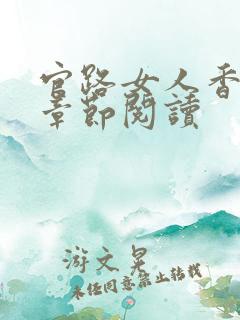 官路女人香
章節閱讀
游文晃
未经同意禁止转载